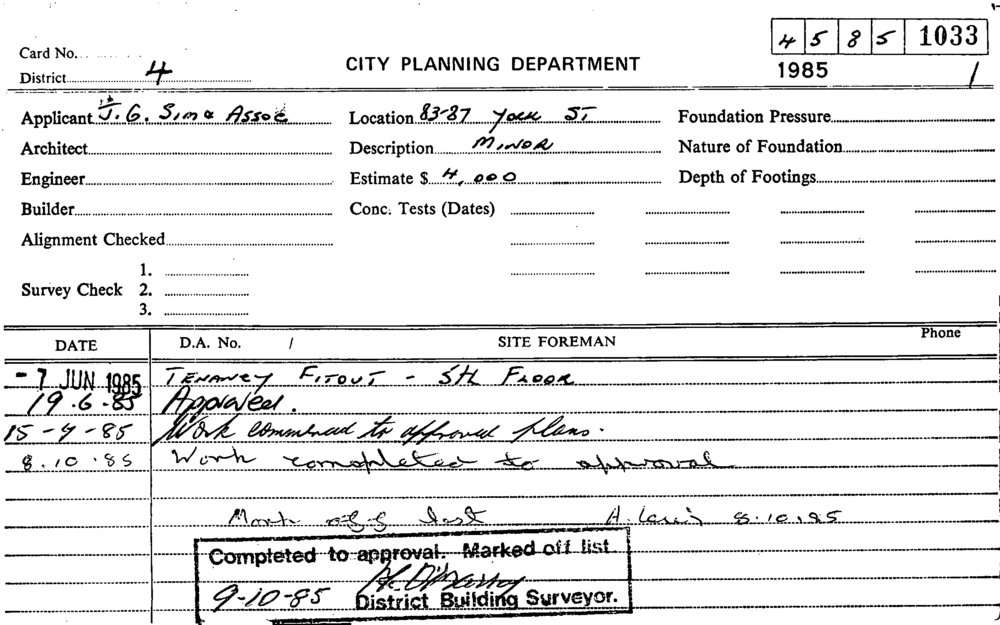 4 5 8 5 1033
Card No.
CITY PLANNING DEPARTMENT
District 4
1985 1
Applicant J. G. Sima Assoc Location 83-87 York St Foundation Pressure
Architect Description Minor Nature of Foundation
Engineer Estimate $ 4,000 Depth of Footings
Builder Conc. Tests (Dates)
Alignment Checked
1.
Survey Check 2.
3.
DATE D.A. No. / SITE FOREMAN Phone
-7 JUN 1985 Tenancy Fitout - 5th Floor
19.6.85 Approved.
15-7-85 Work commenced to approved plans.
8.10.85 Work completed to approval
Mark off list 8.10.85
Completed to approval. Marked off list
9-10-85
District Building Surveyor.